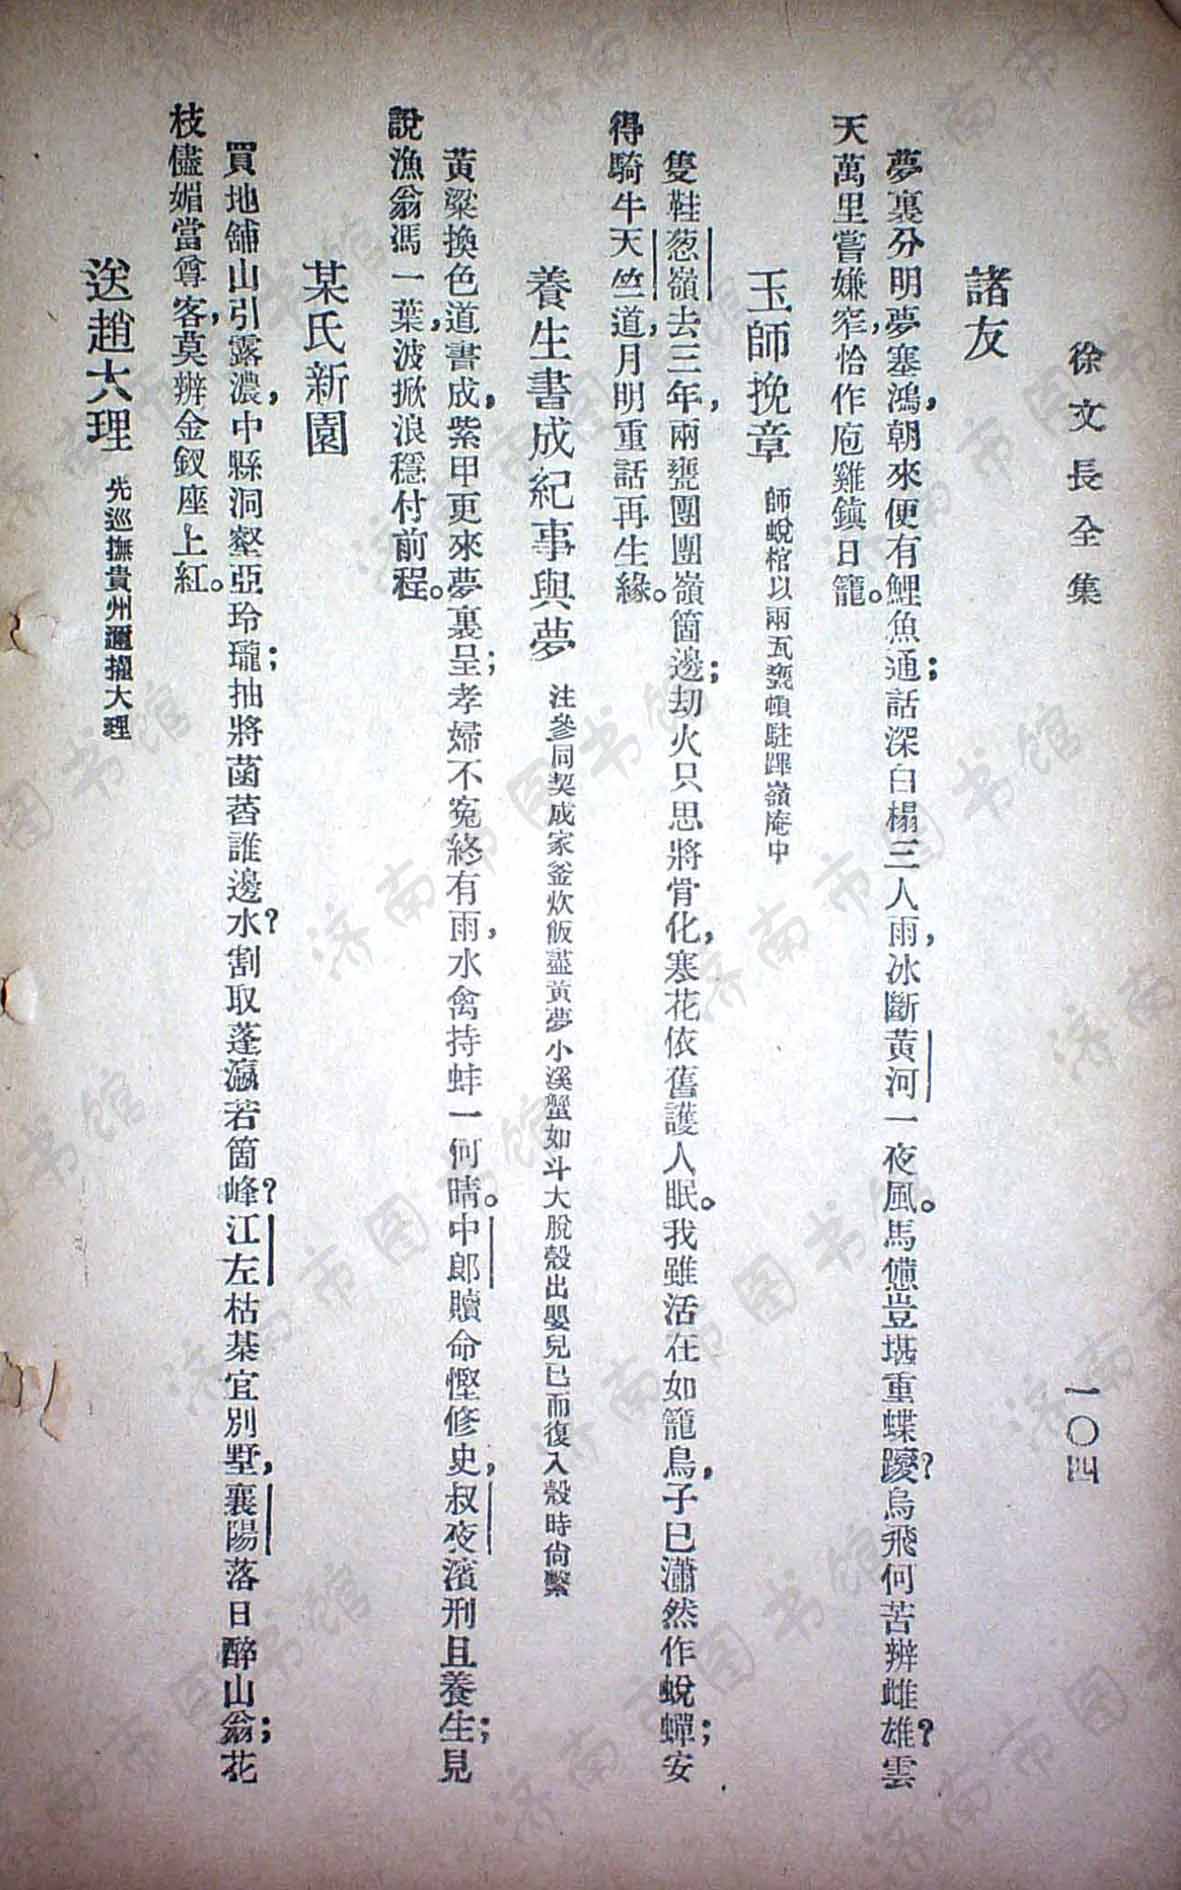 徐文長全集
一〇四
諸友
夢裏分明夢塞鴻，朝來便有鯉魚通；話深白榻三人雨，冰斷黃河一夜風。馬憊豈堪重蝶躞？烏飛何苦辨雌雄？雲
天萬里嘗嫌窄，恰作庖雞鎮日籠。
玉師挽章 師蛻棺以兩瓦甕頓駐蹕嶺庵中
隻鞋葱嶺去三年，兩甕團團嶺箇邊；劫火只思將骨化，寒花依舊護人眠。我雖活在如籠鳥，子已瀟然作蛻蟬；安
得騎牛天竺道，月明重話再生緣。
養生書成紀事與夢 注參同契成家釜炊飯盡黃夢小溪蟹如斗大脫殼出嬰兒已而復入殼時尙繫
黃粱換色道書成，紫甲更來夢裏呈；孝婦不寃終有雨，水禽持蚌一何晴。中郎贖命慳修史，叔夜濱刑且養生；見
說漁翁馮一葉，波掀浪穩付前程。
某氏新園
買地舖山引露濃，中縣洞壑亞玲瓏；抽將菡萏誰邊水？割取蓬瀛若箇峰？江左枯棊宜別墅，襄陽落日醉山翁；花
枝儘媚當尊客，莫辨金釵座上紅。
送趙大理 先巡撫貴州遷擢大理
济南市图书馆